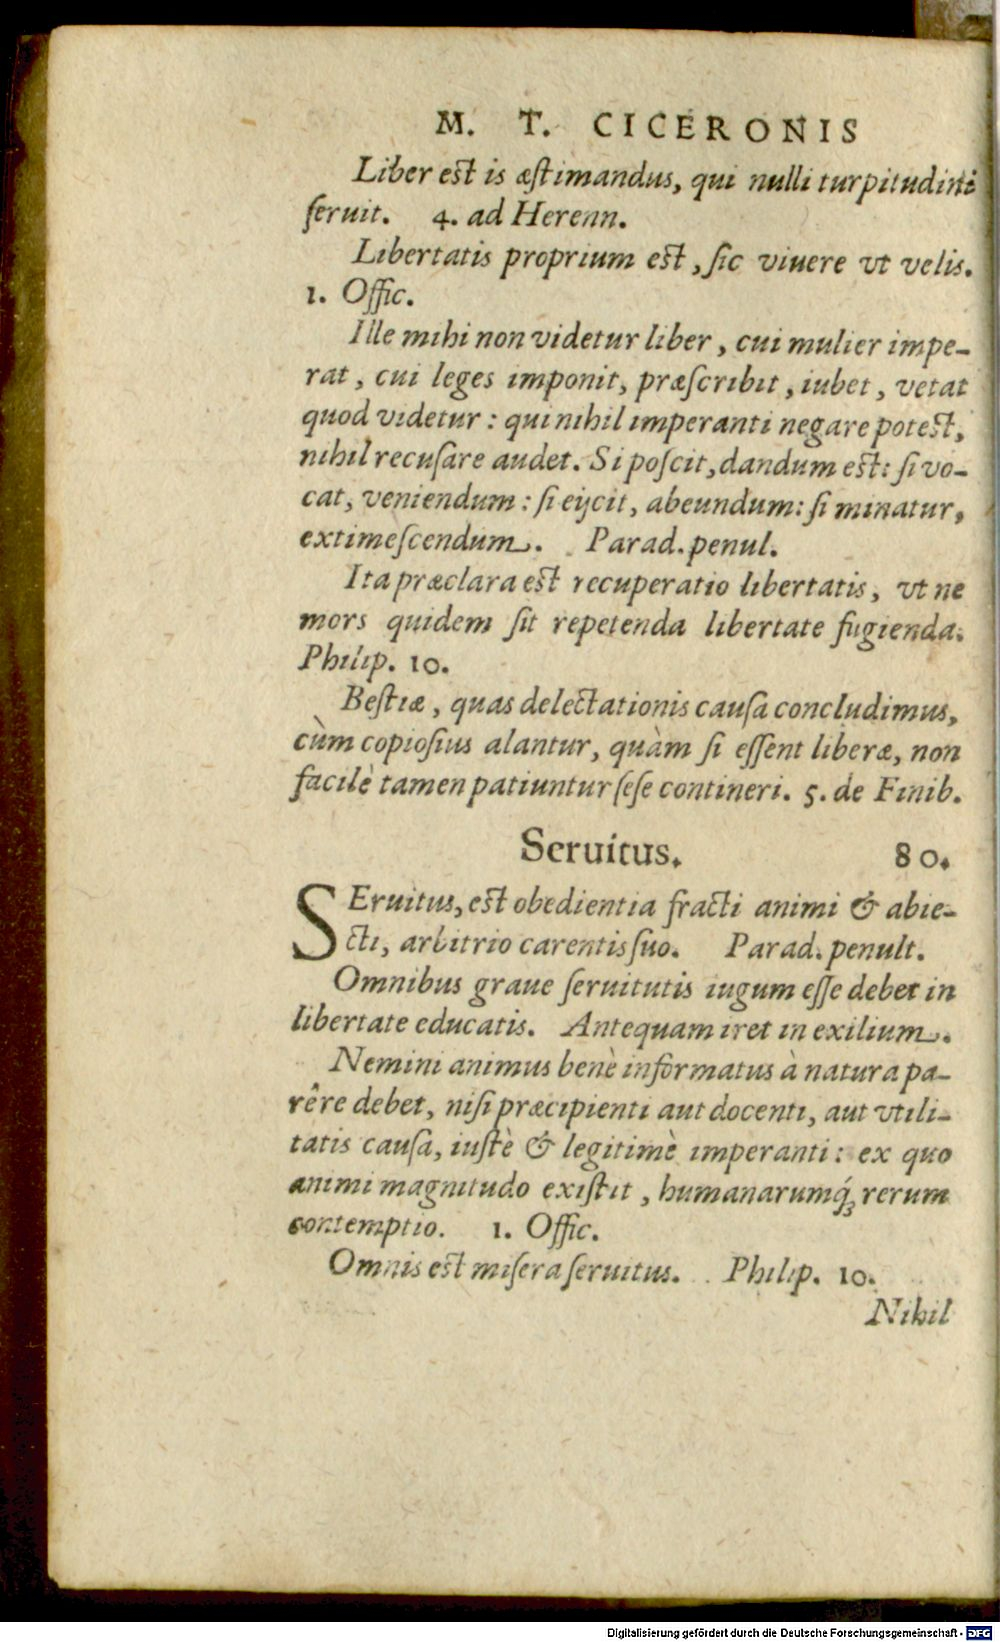 M. T. CICERONIS
Liber est is æstimandus, qui nulli turpitudini
ſeruit. 4. ad Herenn.
Libertatis proprium est, ſic viuere vt velis.
1. Offic.
Ille mihi non videtur liber, cui mulier impe-
rat, cui leges imponit, præſcribit, iubet, vetat
quod videtur: qui nihil imperanti negare potest,
nihil recuſare audet. Si poſcit, dandum est: ſi vo-
cat, veniendum: ſi eijcit, abeundum: ſi minatur,
extimeſcendum. Parad. penul.
Ita præclara est recuperatio libertatis, vt ne
mors quidem ſit repetenda libertate fugienda.
Philip. 10.
Beſtiæ, quas delectationis cauſa concludimus,
cùm copioſius alantur, quàm ſi eſſent liberæ, non
facilè tamen patiuntur ſeſe contineri. 5. de Finib.
Seruitus. 80.
SEruitus, est obedientia fracti animi & abie-
cti, arbitrio carentis ſuo. Parad. penult.
Omnibus graue ſeruitutis iugum eſſe debet in
libertate educatis. Antequam iret in exilium.
Nemini animus benè informatus à natura pa-
rêre debet, niſi præcipienti aut docenti, aut vtili-
tatis cauſa, iuſtè & legitimè imperanti: ex quo
animi magnitudo exiſtit, humanarumq́ꝫ rerum
contemptio. 1. Offic.
Omnis est miſera ſeruitus. Philip. 10.
Nihil
Digitalisierung gefördert durch die Deutsche Forschungsgemeinschaft - DFG